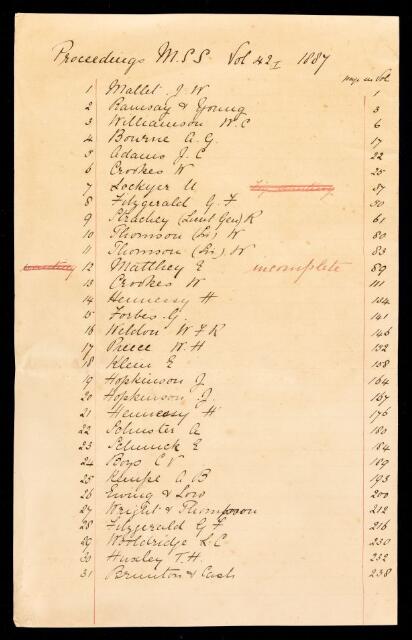 Proceedings M.S.S Vol 42 I 1887
in Vol
1 Mallet J. W 1
2 Ramsay & Young 3
3 Williamson W. C 6
4 Bourne A. G. 17
5 Adams J. C 22
6 Crookes W 25
7 Lockyer N 37
8 Fitzgerald G. F 50
9 Strachey (Lieut Gen) R 61
10 Thomson (Sir) W 80
11 Thomson (Sir) W 83
12 Matthey E incomplete 89
13 Crookes W 111
14 Hennessy H
15 Forbes G. 141
16 Weldon W F R 146
17 Preece W. H 152
18 Klein E 158
19 Hopkinson J. 164
20 Hopkinson J. 167
21 Hennessy H 176
22 Schuster A 180
23 Schunck E 184
24 Boys C V 189
25 Kempe A B 193
26 Ewing & Low 200
27 Wright & Thompson 212
28 Fitzgerald G F 216
29 Wooldridge L C 230
30 Huxley T. H. 232
31 Brunton & Cash 238